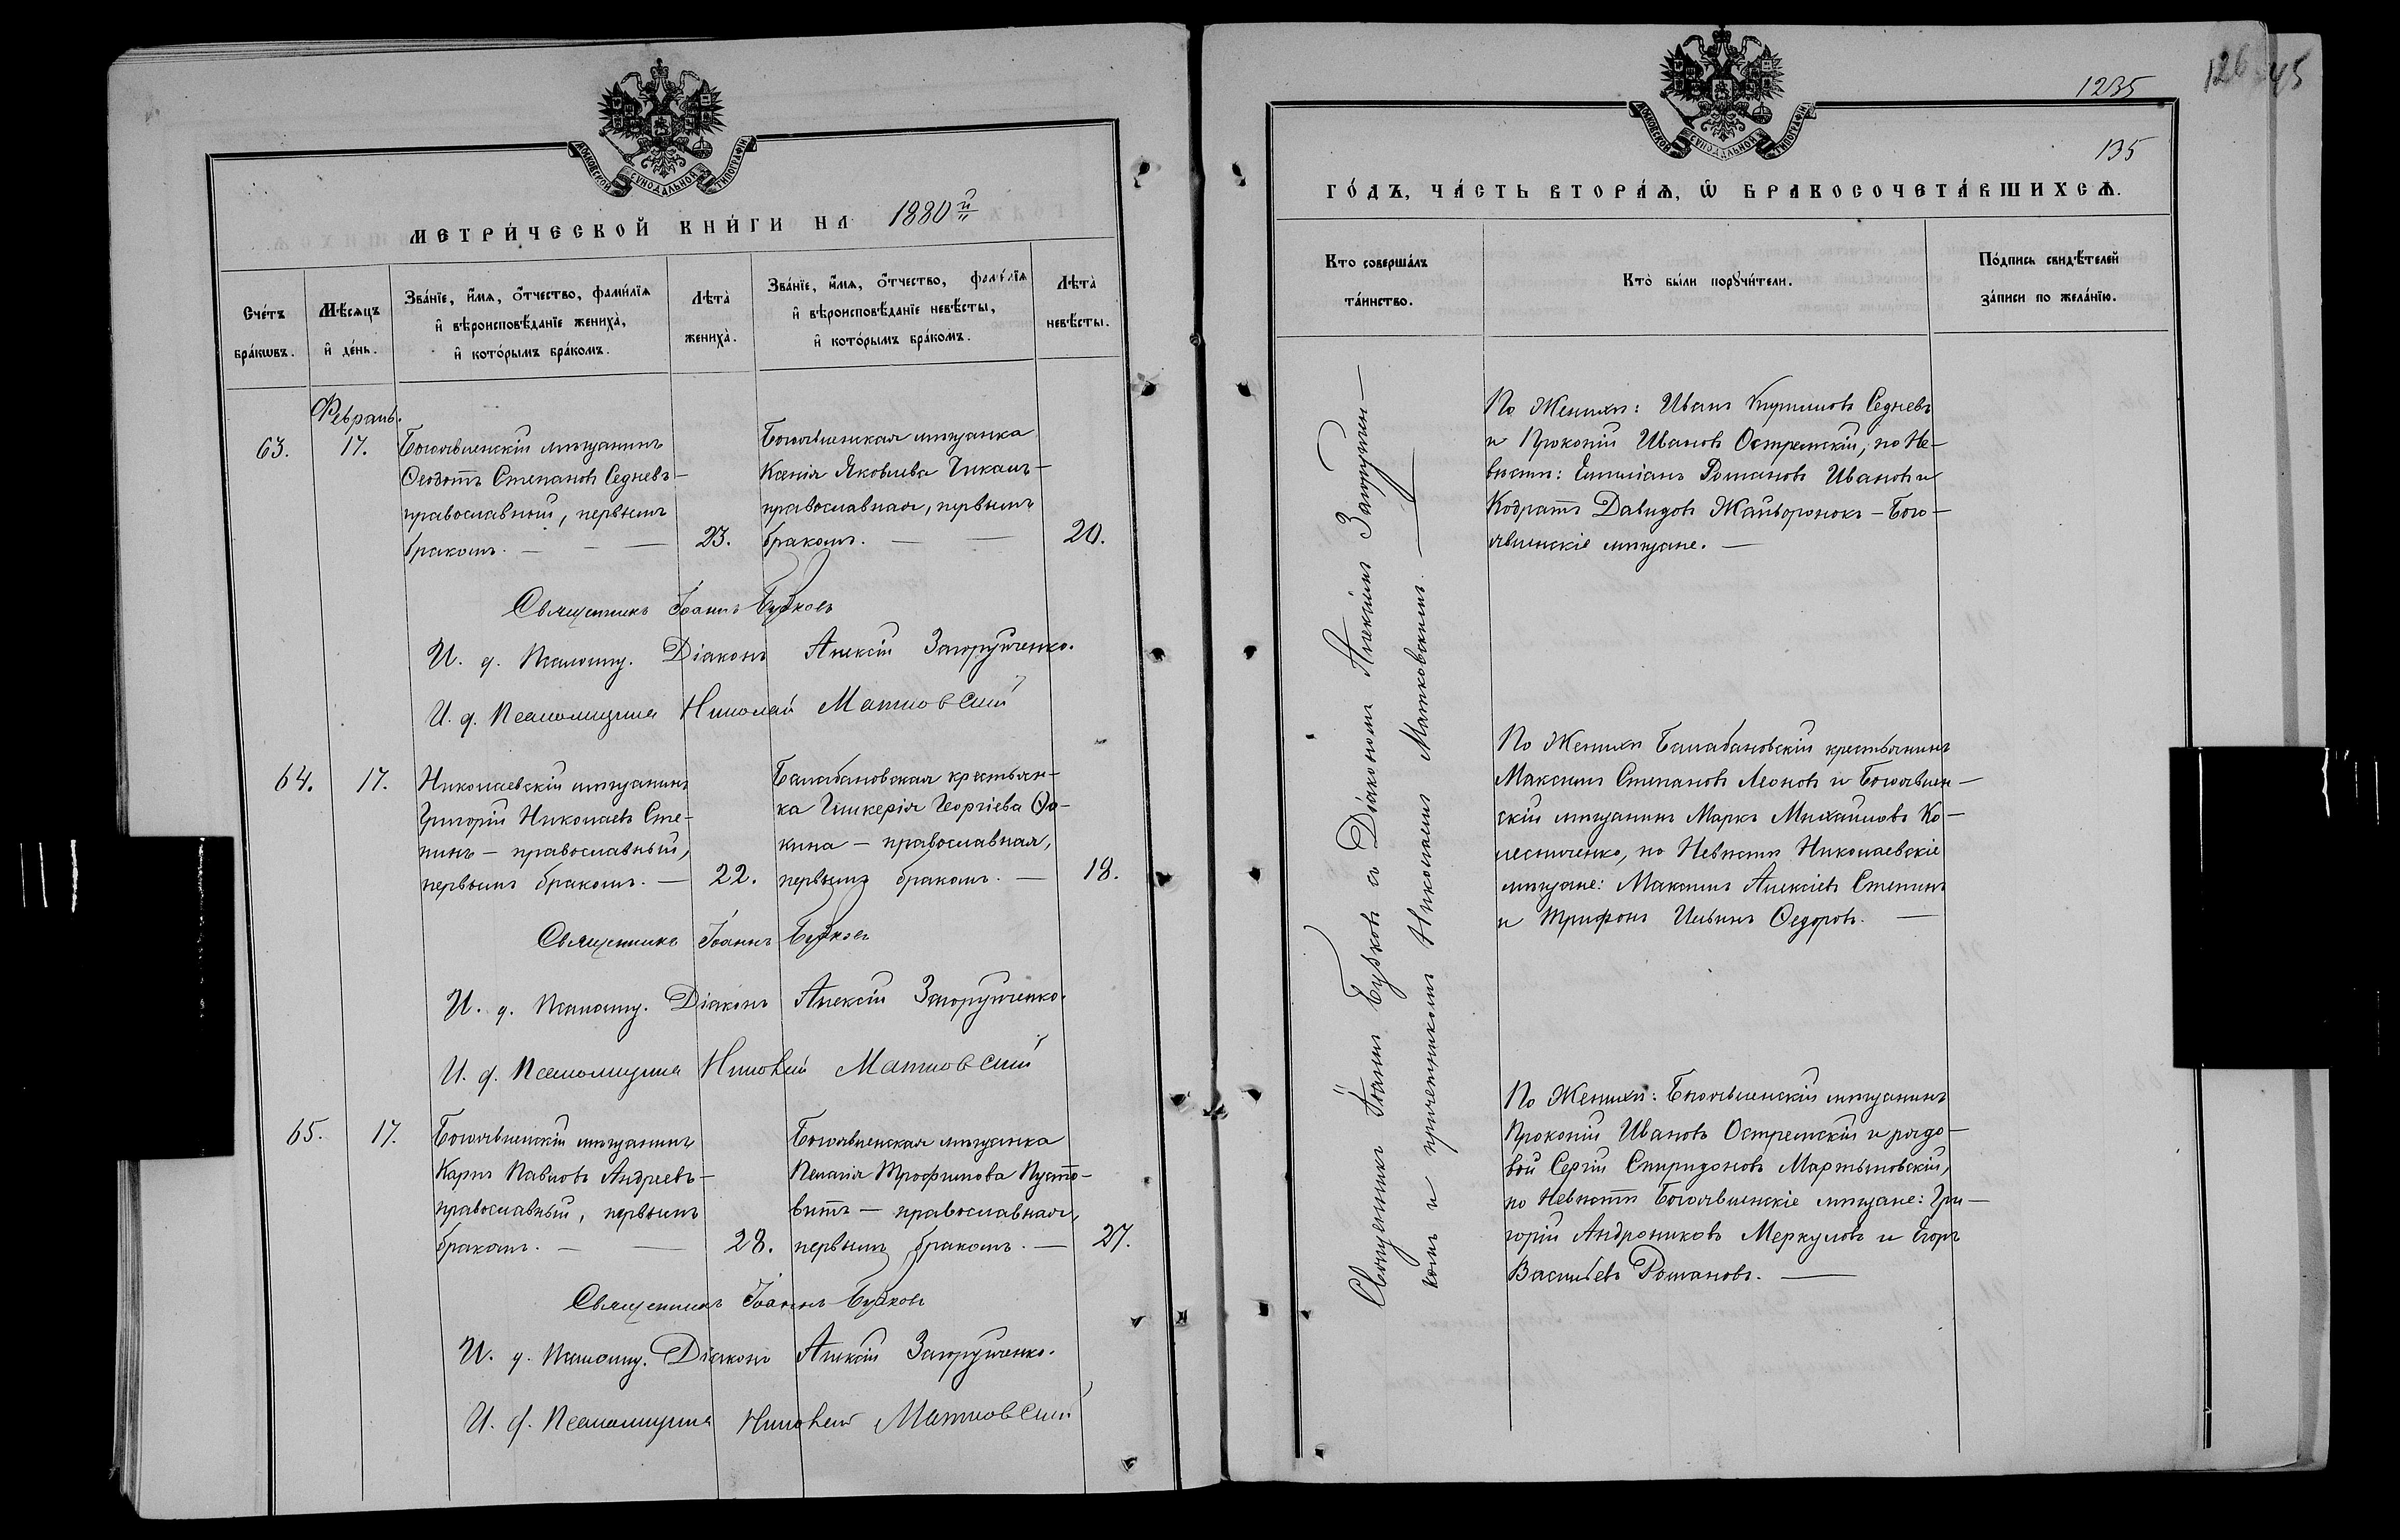 МОСКОВСКОЙ СУНОДАЛЬНОЙ ТИПОГРАФІИ
МЕТРИ́ЧЕСКОЙ КНИ́ГИ НА 1880й
Сче́тъ бра́кωвъ.
Мѣ́сѧцъ и҆ де́нь.
Зва́нїе, и҆́мѧ, ѻ҆́тчество, фами́лїѧ и҆ вѣроисповѣ́данїе жениха̀, и҆ кото́рымъ бра́комъ.
Лѣта̀ жениха̀.
Зва́нїе, и҆́мѧ, ѻ҆́тчество, фами́лїѧ и҆ вѣроисповѣ́данїе невѣ́сты, и҆ кото́рымъ бра́комъ.
Лѣта̀ невѣ́сты.
Февраль.
63.
17.
Богоявленскій мѣщанинъ
Ѳеодотъ Степановъ Седневъ –
православный, первымъ
бракомъ. – – —
23.
Богоявленская мѣщанка
Ксенія Яковлева Чикалъ –
православная, первымъ
бракомъ. — —
20.
Священникъ Іоаннъ Бужковъ
И. д. Псаломщ. Діаконъ Алексій Загоруйченко.
И. д. Псаломщика Николай Матковскій
64.
17.
Николаевскій мѣщанинъ
Григорій Николаевъ Сте-
пинъ – православный,
первымъ бракомъ. —
22.
Балабановская крестьян-
ка Гликерія Георгіева Ѳо-
кина – православная,
первымъ бракомъ. —
18.
Священникъ Іоаннъ Бужковъ
И. д. Псаломщ. Діаконъ Алексій Загоруйченко.
И. д. Псаломщика Николай Матковскій
65.
17.
Богоявленскій мѣщанинъ
Карпъ Павловъ Андреевъ –
православный, первымъ
бракомъ. – —
28.
Богоявленская мѣщанка
Пелагія Трофимова Пусто-
витъ – православная,
первымъ бракомъ. —
27.
Священникъ Іоаннъ Бужковъ
И. д. Псаломщ. Діаконъ Алексій Загоруйченко.
И. д. Псаломщика Николай Матковскій
126
45
1235
135
МОСКОВСКОЙ СУНОДАЛЬНОЙ ТИПОГРАФІИ
ГО́ДЪ, ЧА́СТЬ ВТОРА́Ѧ, Ѽ БРАКОСОЧЕТА́ВШИХСѦ.
Кто̀ соверша́лъ та́инство.
Кто̀ бы́ли порꙋчи́тели.
По́дпись свидѣ́телей за́писи по жела́нїю.
Священникъ Іоаннъ Бужковъ съ Діакономъ Алексіемъ Загоруйчен–
комъ и причетникомъ Николаемъ Матковскимъ. —
По Женихѣ: Иванъ Кирилловъ Седневъ
и Прокопій Ивановъ Остремскій, по Не–
вѣстѣ: Емиліанъ Романовъ Ивановъ и
Кодратъ Давидовъ Жайворонокъ – Бого–
явленскіе мѣщане. —
По Женихѣ Балабановскій крестьянинъ
Максимъ Степановъ Леоновъ и Богоявлен–
скій мѣщанинъ Маркъ Михаиловъ Ко–
лесниченко, по Невѣстѣ Николаевскіе
мѣщане: Максимъ Алексіевъ Степинъ
и Трифонъ Ильинъ Ѳедоровъ. —
По Женихѣ: Богоявленскій мѣщанинъ
Прокопій Ивановъ Остремскій и рядо–
вой Сергій Спиридоновъ Мартыновскій,
по Невѣстѣ Богоявленскіе мѣщане: Гри–
горій Андрониковъ Меркуловъ и Егоръ
Васильевъ Романовъ. —